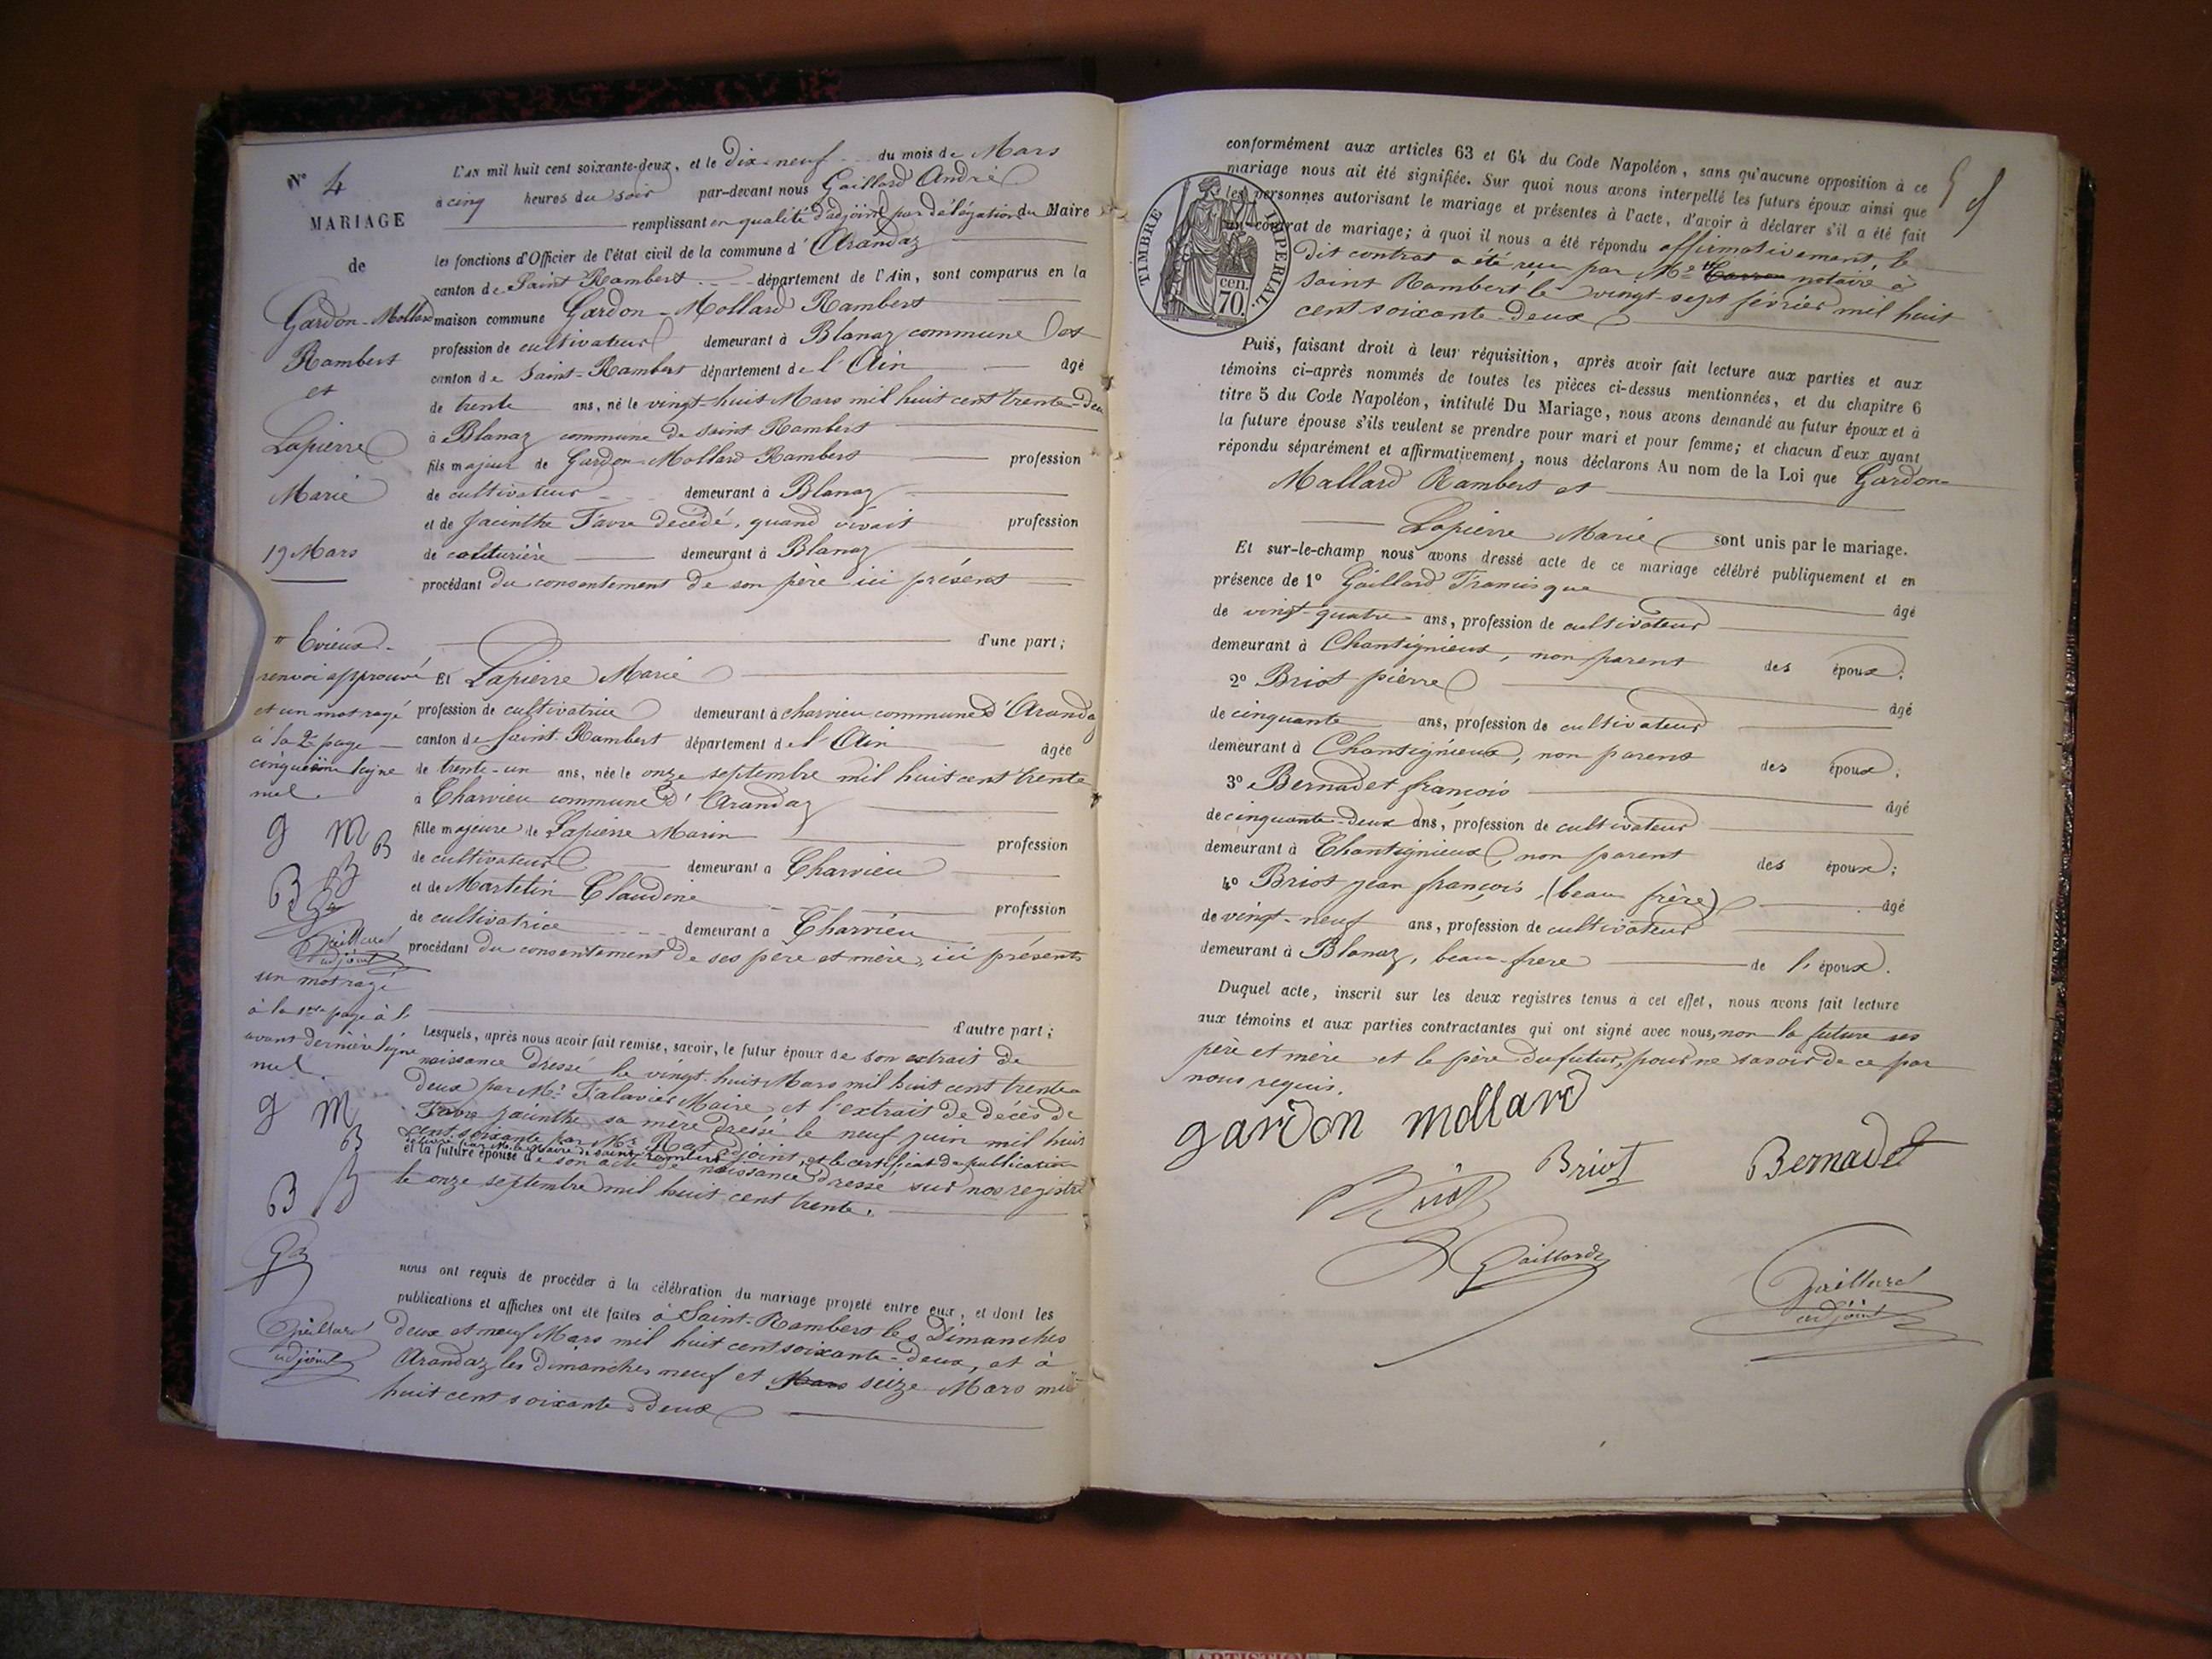 N° 4
MARIAGE
de
Gardon-Mollard
Rambert
et
Lapierre
Marie
19 Mars
# Evieux-
renvoi approuvé
et un mot rayé
à la 2e page —
cinquième ligne
nul.
g M B
B B
Gaillard
adjoint
un mot rayé
à la 1ère page à l'
avant dernière ligne
nul.
g M
B
B B
Gaillard
adjoint
L'AN mil huit cent soixante-deux, et le Dix-neuf du mois de Mars
à cinq heures du soir par-devant nous Gaillard André
remplissant en qualité d'adjoint par délégation du Maire
les fonctions d'Officier de l'état civil de la commune d'Arandaz
canton de Saint Rambert département de l'Ain, sont comparus en la
maison commune Gardon-Mollard Rambert
profession de cultivateur demeurant à Blanaz commune Det
canton de Saint-Rambert département de l'Ain âgé
de trente ans, né le vingt-huit Mars mil huit cent trente-deux
à Blanaz commune de Saint Rambert
fils majeur de Gardon-Mollard Rambert profession
de cultivateur demeurant à Blanaz
et de Jacinthe Favre décédé, quand vivait profession
de coûturière demeurant à Blanaz
procédant du consentement de son père ici présent
d'une part;
Et Lapierre Marie
profession de cultivatrice demeurant à charvieu commune d'Arandaz
canton de saint-Rambert département de l'Ain âgée
de trente-un ans, née le onze septembre mil huit cent trente
à Charvieu commune d'Arandaz
fille majeure de Lapierre Marin profession
de cultivateur demeurant à Charvieu
et de Martelin Claudine profession
de cultivatrice demeurant à Charvieu
procédant du consentement de ses père et mère, ici présents
d'autre part;
Lesquels, après nous avoir fait remise, savoir, le futur époux de son extrait de
naissance Dressé le vingt-huit Mars mil huit cent trente-
deux par Mr Falavier Maire, et l'extrait de décès de
Favre jacinthe sa mère Dressé le neuf juin mil huit
cent soixante par Mr Rat adjoint, et le certificat de publication
délivré par Mr le Maire de Saint Rambert
et la future épouse de son acte de naissance dressé sur nos registres
le onze septembre mil huit cent trente.
nous ont requis de procéder à la célébration du mariage projeté entre eux, et dont les
publications et affiches ont été faites à Saint-Rambert les Dimanches
deux et neuf Mars mil huit cent soixante-deux, et à
Arandaz les dimanches neuf et Mars seize Mars mil
huit cent soixante-deux
conformément aux articles 63 et 64 du Code Napoléon, sans qu'aucune opposition à ce
mariage nous ait été signifiée. Sur quoi nous avons interpellé les futurs époux ainsi que
les personnes autorisant le mariage et présentes à l'acte, d'avoir à déclarer s'il a été fait
un contrat de mariage; à quoi il nous a été répondu affirmativement, le
TIMBRE IMPERIAL.
cen.
70.
dit contrat a été reçu par Me # notaire à
Saint Rambert le vingt-sept février mil huit
cent soixante-deux
Puis, faisant droit à leur réquisition, après avoir fait lecture aux parties et aux
témoins ci-après nommés de toutes les pièces ci-dessus mentionnées, et du chapitre 6
titre 5 du Code Napoléon, intitulé Du Mariage, nous avons demandé au futur époux et à
la future épouse s'ils veulent se prendre pour mari et pour femme; et chacun d'eux ayant
répondu séparément et affirmativement, nous déclarons Au nom de la Loi que Gardon-
Mallard Rambert et
Lapierre Marie sont unis par le mariage.
Et sur-le-champ nous avons dressé acte de ce mariage célébré publiquement et en
présence de 1° Gaillard Francisque âgé
de vingt-quatre ans, profession de cultivateur
demeurant à Chantignieux, non parent des époux;
2° Briot pierre âgé
de cinquante ans, profession de cultivateur
demeurant à Chantignieux, non parent des époux;
3° Bernadet françois âgé
de cinquante-deux ans, profession de cultivateur
demeurant à Chantignieux, non parent des époux;
4° Briot jean françois, (beau frère) âgé
de vingt-neuf ans, profession de cultivateur
demeurant à Blanaz, beau-frere de l'époux.
Duquel acte, inscrit sur les deux registres tenus à cet effet, nous avons fait lecture
aux témoins et aux parties contractantes qui ont signé avec nous, non la future ses
père et mère et le père du futur, pour ne savoir de ce par
nous requis.
garDon mollard
Briot Bernadet
Briot
Gaillard
Gaillard
adjoint